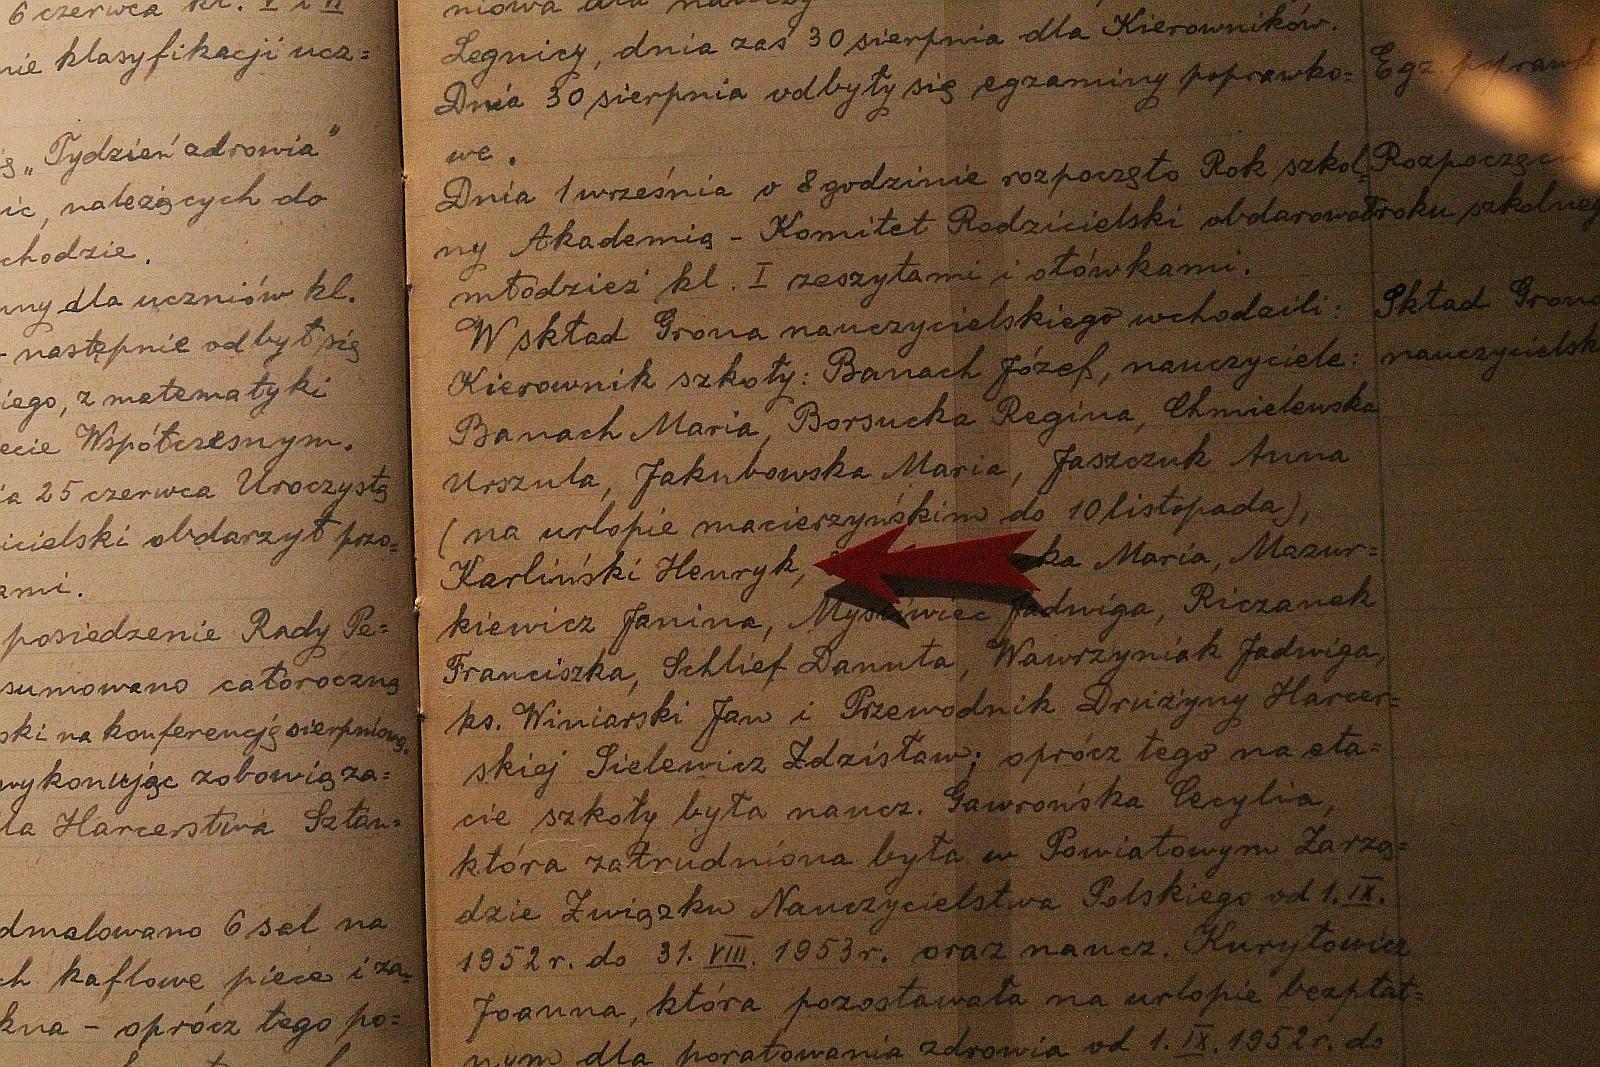 6 czerwca kl. V i VI
nie klasyfikacji ucz=
„Tydzień zdrowia"
nic, należących do
chodzie.
nny dla uczniów kl.
- następnie odbył się
iego, z matematyki
ecie Współczesnym.
ia 25 czerwca Uroczystą
icielski obdarzył prze=
ami.
posiedzenie Rady Pe=
sumowano całoroczną
ski na konferencję sierpniową.
wykonując zobowiąza=
la Harcerstwa Sztan=
dmalowano 6 sal na
ch kaflowe piece i za=
kna - oprócz tego po=
niowa dla nauczy
Legnicy, dnia zaś 30 sierpnia dla Kierowników.
Dnia 30 sierpnia odbyły się egzaminy poprawko=
we.
Dnia 1 września o 8 godzinie rozpoczęto Rok szkol=
ny Akademią - Komitet Rodzicielski obdarował
młodzież kl. I zeszytami i ołówkami.
W skład Grona nauczycielskiego wchodzili:
Kierownik szkoły: Banach Józef, nauczyciele:
Banach Maria, Borsucka Regina, Chmielewska
Urszula, Jakubowska Maria, Jaszczuk Anna
(na urlopie macierzyńskim do 10 listopada),
Karliński Henryk, ka Maria, Mazur=
kiewicz Janina, Mysłowiec Jadwiga, Riczanek
Franciszka, Schlief Danuta, Wawrzyniak Jadwiga,
ks. Winiarski Jan i Przewodnik Drużyny Harcer=
skiej Sielewicz Zdzisław; oprócz tego na eta=
cie szkoły była naucz. Gawrońska Cecylia,
która zatrudniona była w Powiatowym Zarzą=
dzie Związku Nauczycielstwa Polskiego od 1. IX.
1952 r. do 31. VIII. 1953 r. oraz naucz. Kuryłowicz
Joanna, która pozostawała na urlopie bezpłat=
nym dla poratowania zdrowia od 1. IX. 1952 r. do
Egz. poprawk
Rozpoczęcie
roku szkolneg
Skład Grona
nauczycielsk